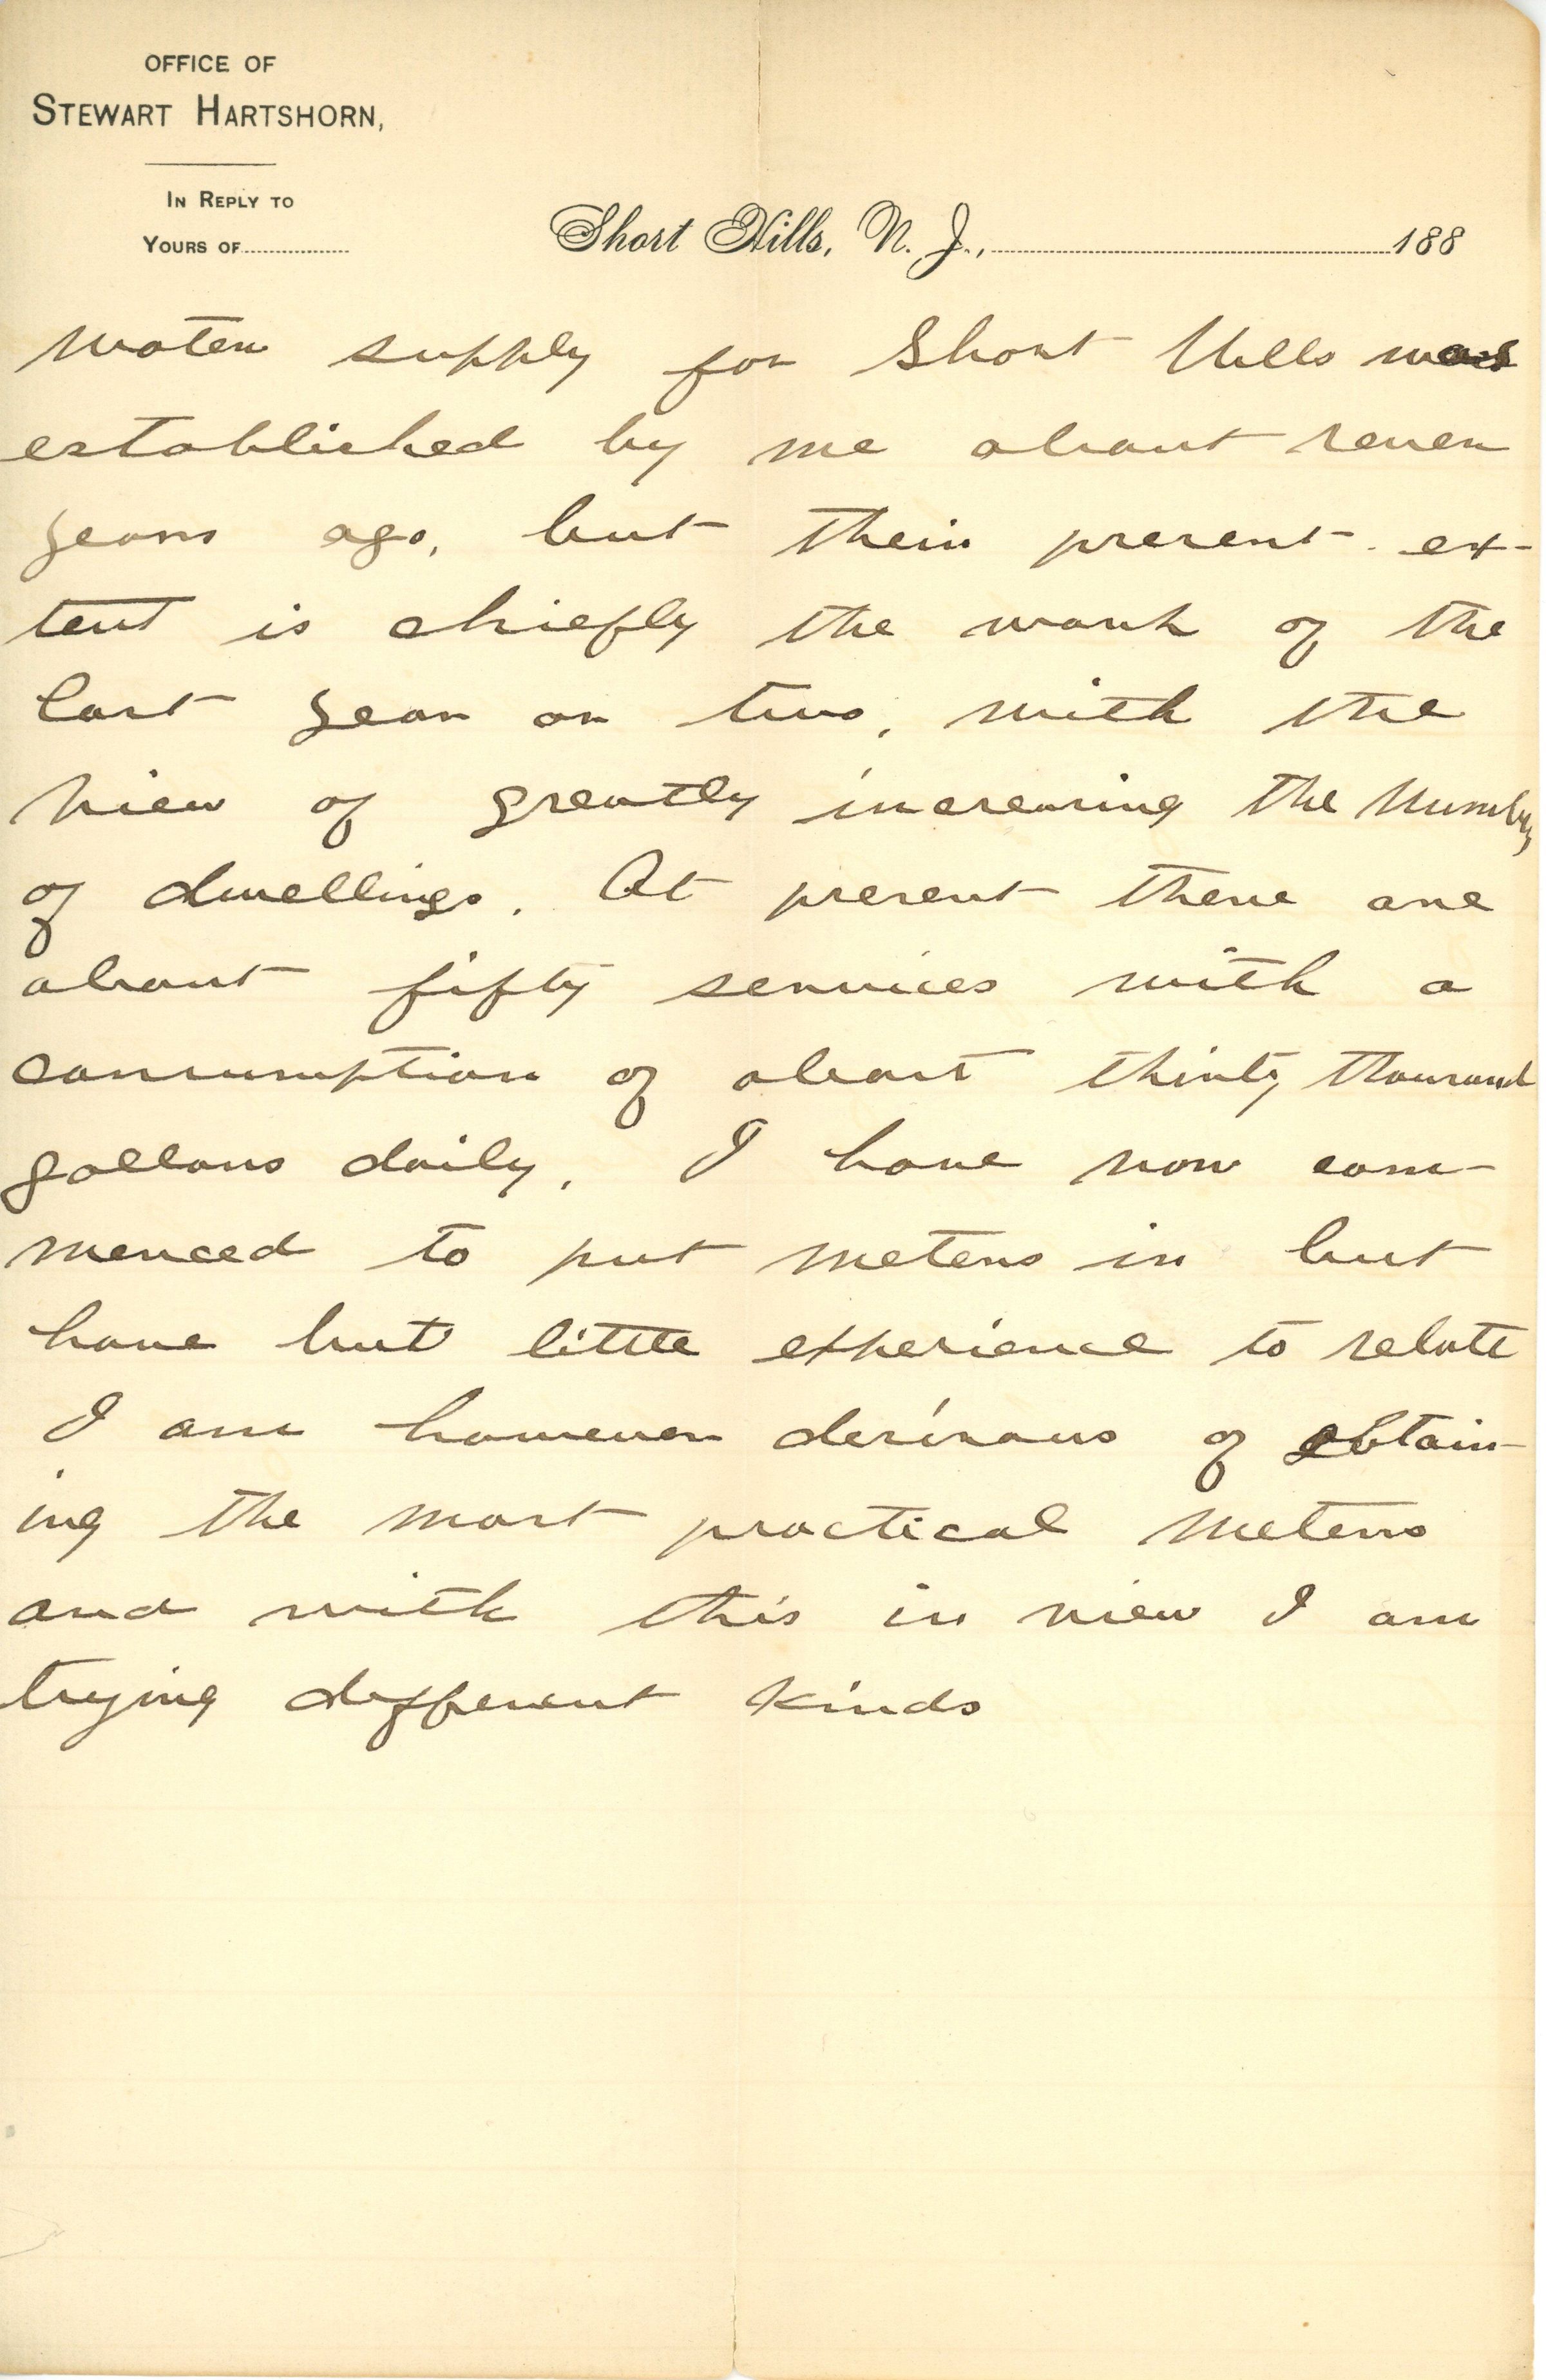 OFFICE OF
STEWART HARTSHORN,
IN REPLY TO
YOURS OF
Short Hills, N. J., 188
water supply for Short Hills was
established by me about seven
years ago, but their present ex-
tent is chiefly the work of the
last year or two, with the
view of greatly increasing the number
of dwellings. At present there are
about fifty services with a
consumption of about thirty thousand
gallons daily. I have now com-
menced to put meters in but
have but little experience to relate
I am however desirous of obtain-
ing the most practical meters
and with this in view I am
trying different kinds